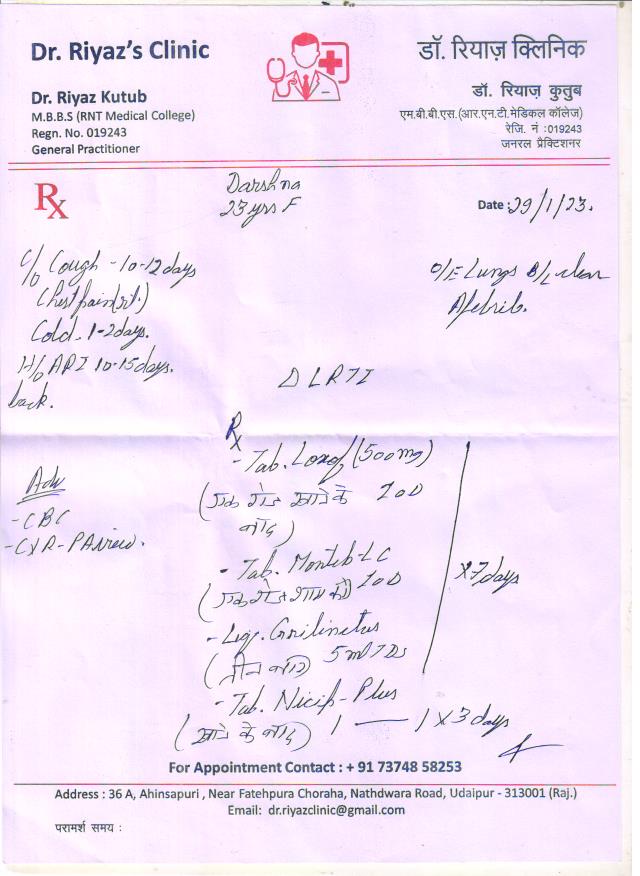 Dr. Riyaz's Clinic
डॉ. रियाज़ क्लिनिक
Dr. Riyaz Kutub
M.B.B.S (RNT Medical College)
Regn. No. 019243
General Practitioner
डॉ. रियाज़ कुतुब
एम.बी.बी.एस.(आर.एन.टी.मेडिकल कॉलेज)
रेजि. नं :019243
जनरल प्रैक्टिशनर
Rx
Darshna
23 yrs F
Date : 29/1/23.
C/o Cough - 10-12 days
Chest pain (rt.)
Cold. 1-2 days.
H/o ARI 10-15 days.
back.
O/E Lungs B/L clear
Afebrile.
LRTI
Rx
- Tab. (500mg)
(एक रोज खाने के 1 OD
बाद)
- Tab. Montek-LC
(एक रोज शाम को) 1 OD
- Liq. Grilinctus
(तीन बार) 5 ml TDS
x 7 days
- Tab. Nicip-Plus
(खाने के बाद) 1 — 1 x 3 days
Adv
- CBC
- CXR - PA view.
For Appointment Contact : + 91 73748 58253
Address : 36 A, Ahinsapuri , Near Fatehpura Choraha, Nathdwara Road, Udaipur - 313001 (Raj.)
Email: dr.riyazclinic@gmail.com
परामर्श समय :